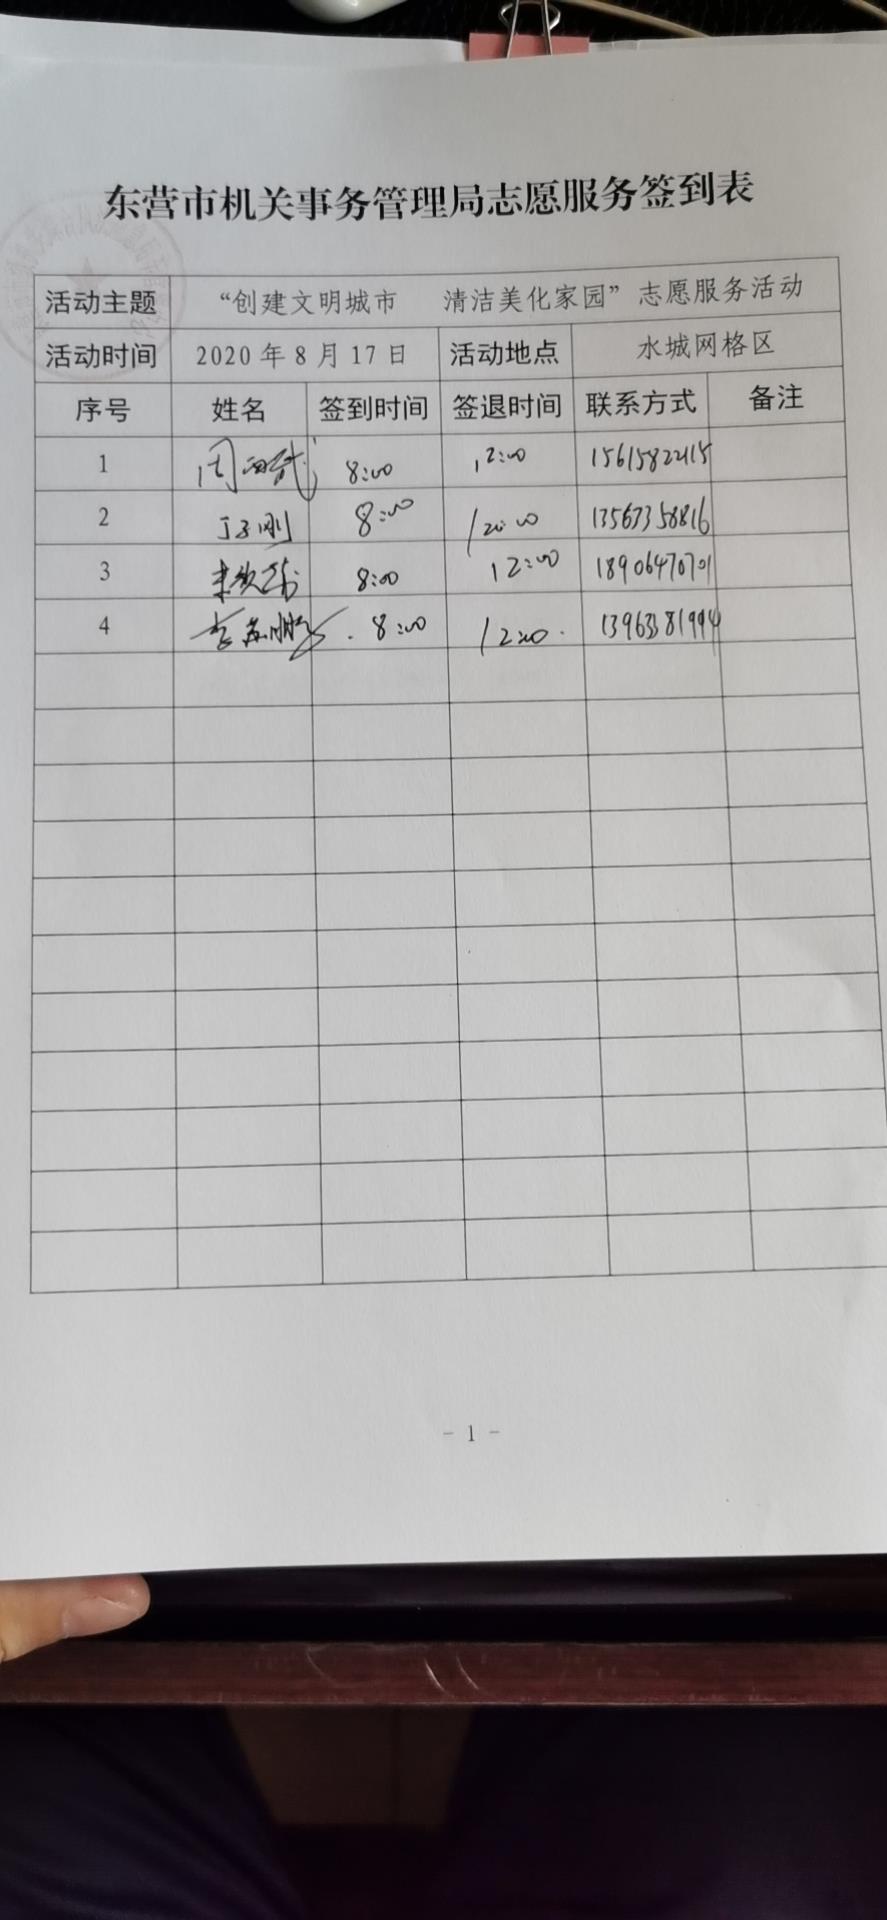 东营市机关事务管理局志愿服务签到表
活动主题 “创建文明城市 清洁美化家园”志愿服务活动
活动时间 2020年8月17日 活动地点 水城网格区
序号 姓名 签到时间 签退时间 联系方式 备注
1 周 8:00 12:00 15615822415
2 8:00 12:00 13563358816
3 8:00 12:00 18906470701
4 李 8:00 12:00 13963381994
- 1 -